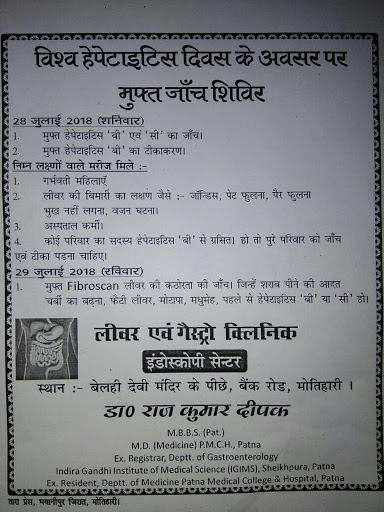 विश्व हेपेटाइटिस दिवस के अवसर पर
मुफ्त जाँच शिविर
28 जुलाई 2018 (शनिवार)
1. मुफ्त हेपेटाइटिस 'बी' एवं 'सी' का जाँच।
2. मुफ्त हेपेटाइटिस 'बी' का टीकाकरण।
निम्न लक्ष्णों वाले मरीज मिले :-
1. गर्भवती महिलाएँ
2. लीवर की बिमारी का लक्षण जैसे :- जॉन्डिस, पेट फुलना, पैर फुलना
भुख नहीं लगना, वजन घटना।
3. अस्पताल कर्मी।
4. कोई परिवार का सदस्य हेपेटाइटिस 'बी' से ग्रसित। हो तो पुरे परिवार को जाँच
एवं टीका पड़ना चाहिए।
29 जुलाई 2018 (रविवार)
1. मुफ्त Fibroscan लीवर की कठोरता की जाँच। जिन्हें शराब पीने की आदत
चर्बी का बढ़ना, फैटी लीवर, मोटापा, मधुमेह, पहले से हेपेटाइटिस 'बी' या 'सी' हो।
लीवर एवं गैस्ट्रो क्लिनिक
इंडोस्कोपी सेन्टर
स्थान :- बेलही देवी मंदिर के पीछे, बैंक रोड, मोतिहारी ।
डा० राज कुमार दीपक
M.B.B.S. (Pat.)
M.D. (Medicine) P.M.C.H., Patna
Ex. Registrar, Deptt. of Gastroenterology
Indira Gandhi Institute of Medical Science (IGIMS), Sheikhpura, Patna
Ex. Resident, Deptt. of Medicine Patna Medical College & Hospital, Patna
तारा प्रेस, भवानीपुर जिरात, मोतिहारी।